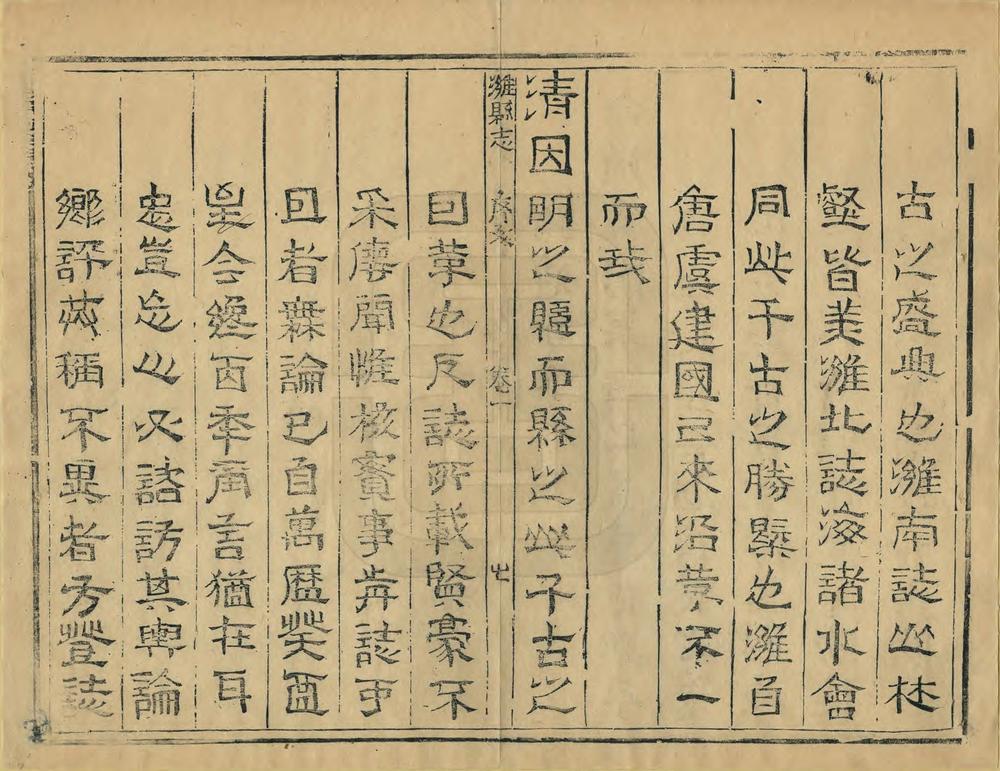 古之盛典也濰南誌山林
壑皆美濰北誌海諸水會
同此千古之勝槩也濰自
唐虞建國已來沿革不一
而我
清因明之縣而縣之此千古之
濰縣志 序文 卷一 七
囙革也及誌所載賢豪不
采傳聞惟核實事歬誌所
囙者無論已自萬曆癸酉
今百年言猶在耳
忠豈忘心必諮訪其輿論
鄉評並稱不異者方登誌